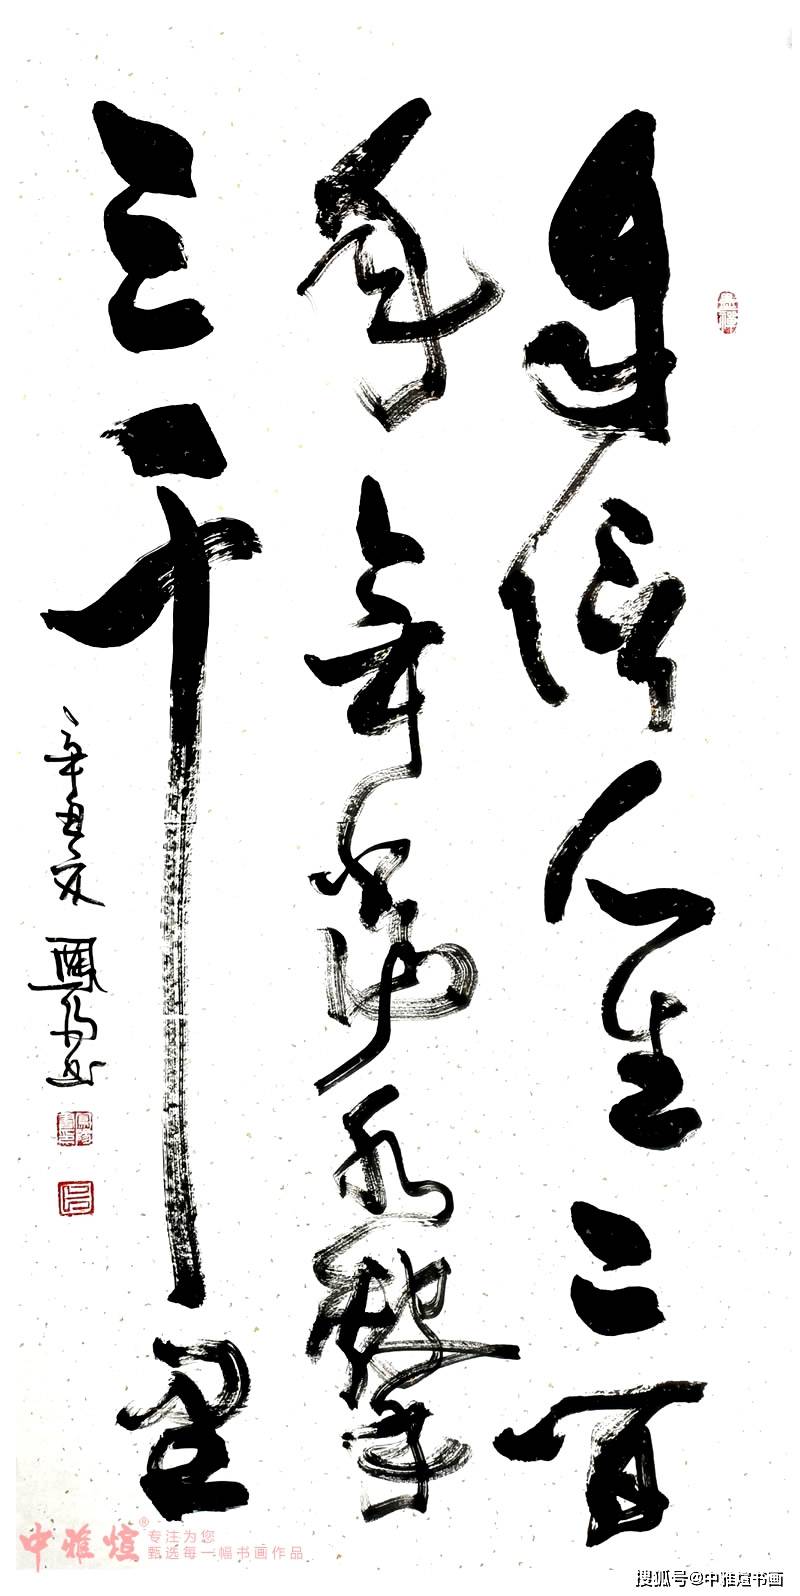 自信人生二百
年会當水擊
三千里
辛丑夏
中雅煊®
专注为您
甄选每一幅书画作品
搜狐号@中雅煊书画